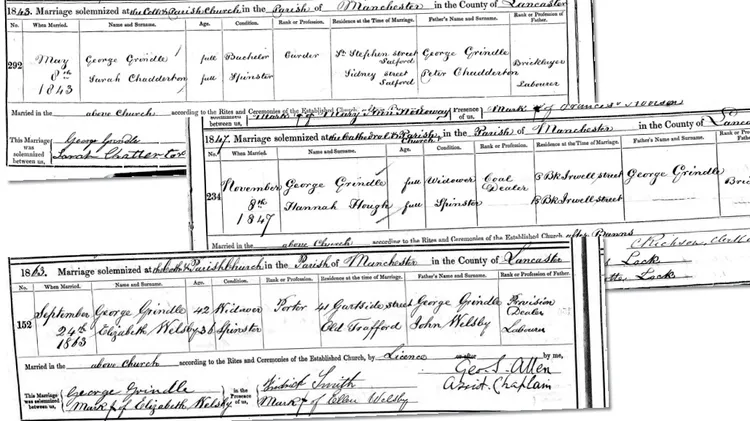 1843. Marriage solemnized at the Coll & Parish Church in the Parish of Manchester in the County of Lancaster
No. When Married. Name and Surname. Age. Condition. Rank or Profession. Residence at the Time of Marriage. Father's Name and Surname. Rank or Profession of Father.
292 May George Grindle full Bachelor Carder St Stephen Street George Grindle Bricklayer
8th Salford
1843 Sarah Chadderton full Spinster Sidney Street Peter Chadderton Labourer
Salford
Married in the above Church according to the Rites and Ceremonies of the Established Church
This Marriage was solemnized between us,
George Grindle
Sarah
between us, Mark of Mary Ann Holloway Presence of us, Mark of Frances
1847. Marriage solemnized at the Cathedral & Parish Church in the Parish of Manchester in the County of
No. When Married. Name and Surname. Age. Condition. Rank or Profession. Residence at the Time of Marriage. Father's Name and Surname.
234 November George Grindle full Widower Coal Dealer 8 Bk Irwell Street George Grindle Bri
8th Hannah Hough full Spinster 8 Bk Irwell Street
1847
Married in the above Church according to the Rites and Ceremonies of the Established Church after Banns
Lock
Lock
1863. Marriage solemnized at the Cath & Parish Church in the Parish of Manchester in the County of Lancaster
No. When Married. Name and Surname. Age. Condition. Rank or Profession. Residence at the time of Marriage. Father's Name and Surname. Rank or Profession of Father.
152 September George Grindle 42 Widower Porter 41 Gartside Street George Grindle Provision Dealer
24th Elizabeth Welsby 38 Spinster Old Trafford John Welsby Labourer
1863
Married in the above Church according to the Rites and Ceremonies of the Established Church, by Licence by me,
Geo. S. Allen
Assist Chaplain
This Marriage was solemnized between us,
George Grindle
Mark of Elizabeth Welsby
in the Presence of us,
Smith
Mark of Ellen Welsby